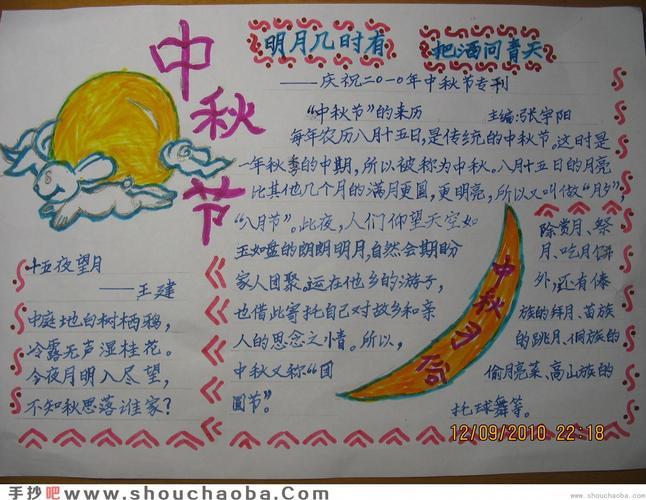 中秋节
明月几时有
把酒问青天
——庆祝二〇一〇年中秋节专刊
"中秋节"的来历
主编:张宇阳
每年农历八月十五日,是传统的中秋节。这时是
一年秋季的中期,所以被称为中秋。八月十五日的月亮
比其他几个月的满月更圆,更明亮,所以又叫做"月夕",
"八月节"。此夜,人们仰望天空如
玉如盘的朗朗明月,自然会期盼
家人团聚。远在他乡的游子,
也借此寄托自己对故乡和亲
人的思念之情。所以,
中秋又称"团
圆节"。
十五夜望月
——王建
中庭地白树栖鸦,
冷露无声湿桂花。
今夜月明人尽望,
不知秋思落谁家?
中秋习俗
除赏月、祭
月、吃月饼
外,还有傣
族的拜月、苗族
的跳月、侗族的
偷月亮菜、高山族的
托球舞等。
12/09/2010 22:18
手抄吧 www.shouchaoba.com
www.shouchaoba.com